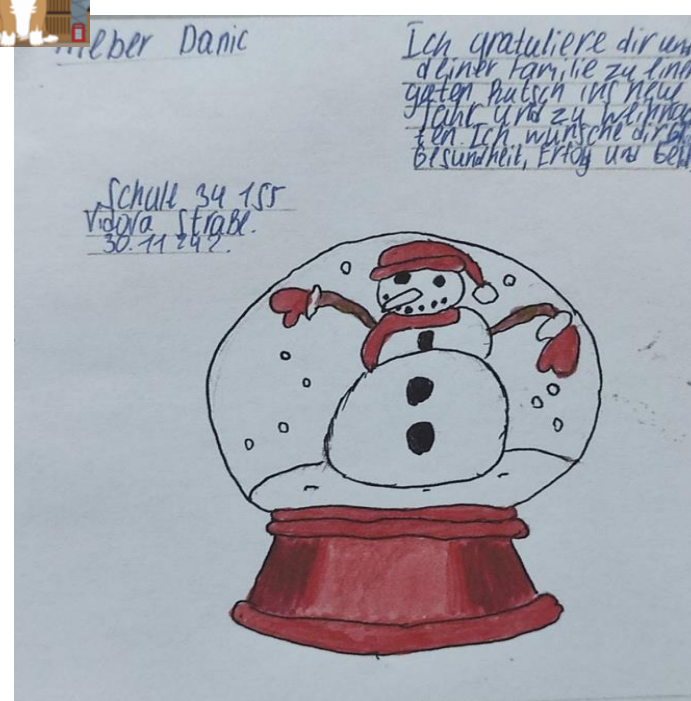 Lieber Danic
Ich gratuliere dir und
deiner Familie zu eine
guten Rutsch ins neue
Jahr und zu Weihnac
ten. Ich wünsche dir
Gesundheit, Erfolg und
Schule 34
Vidova Straße.
30.11